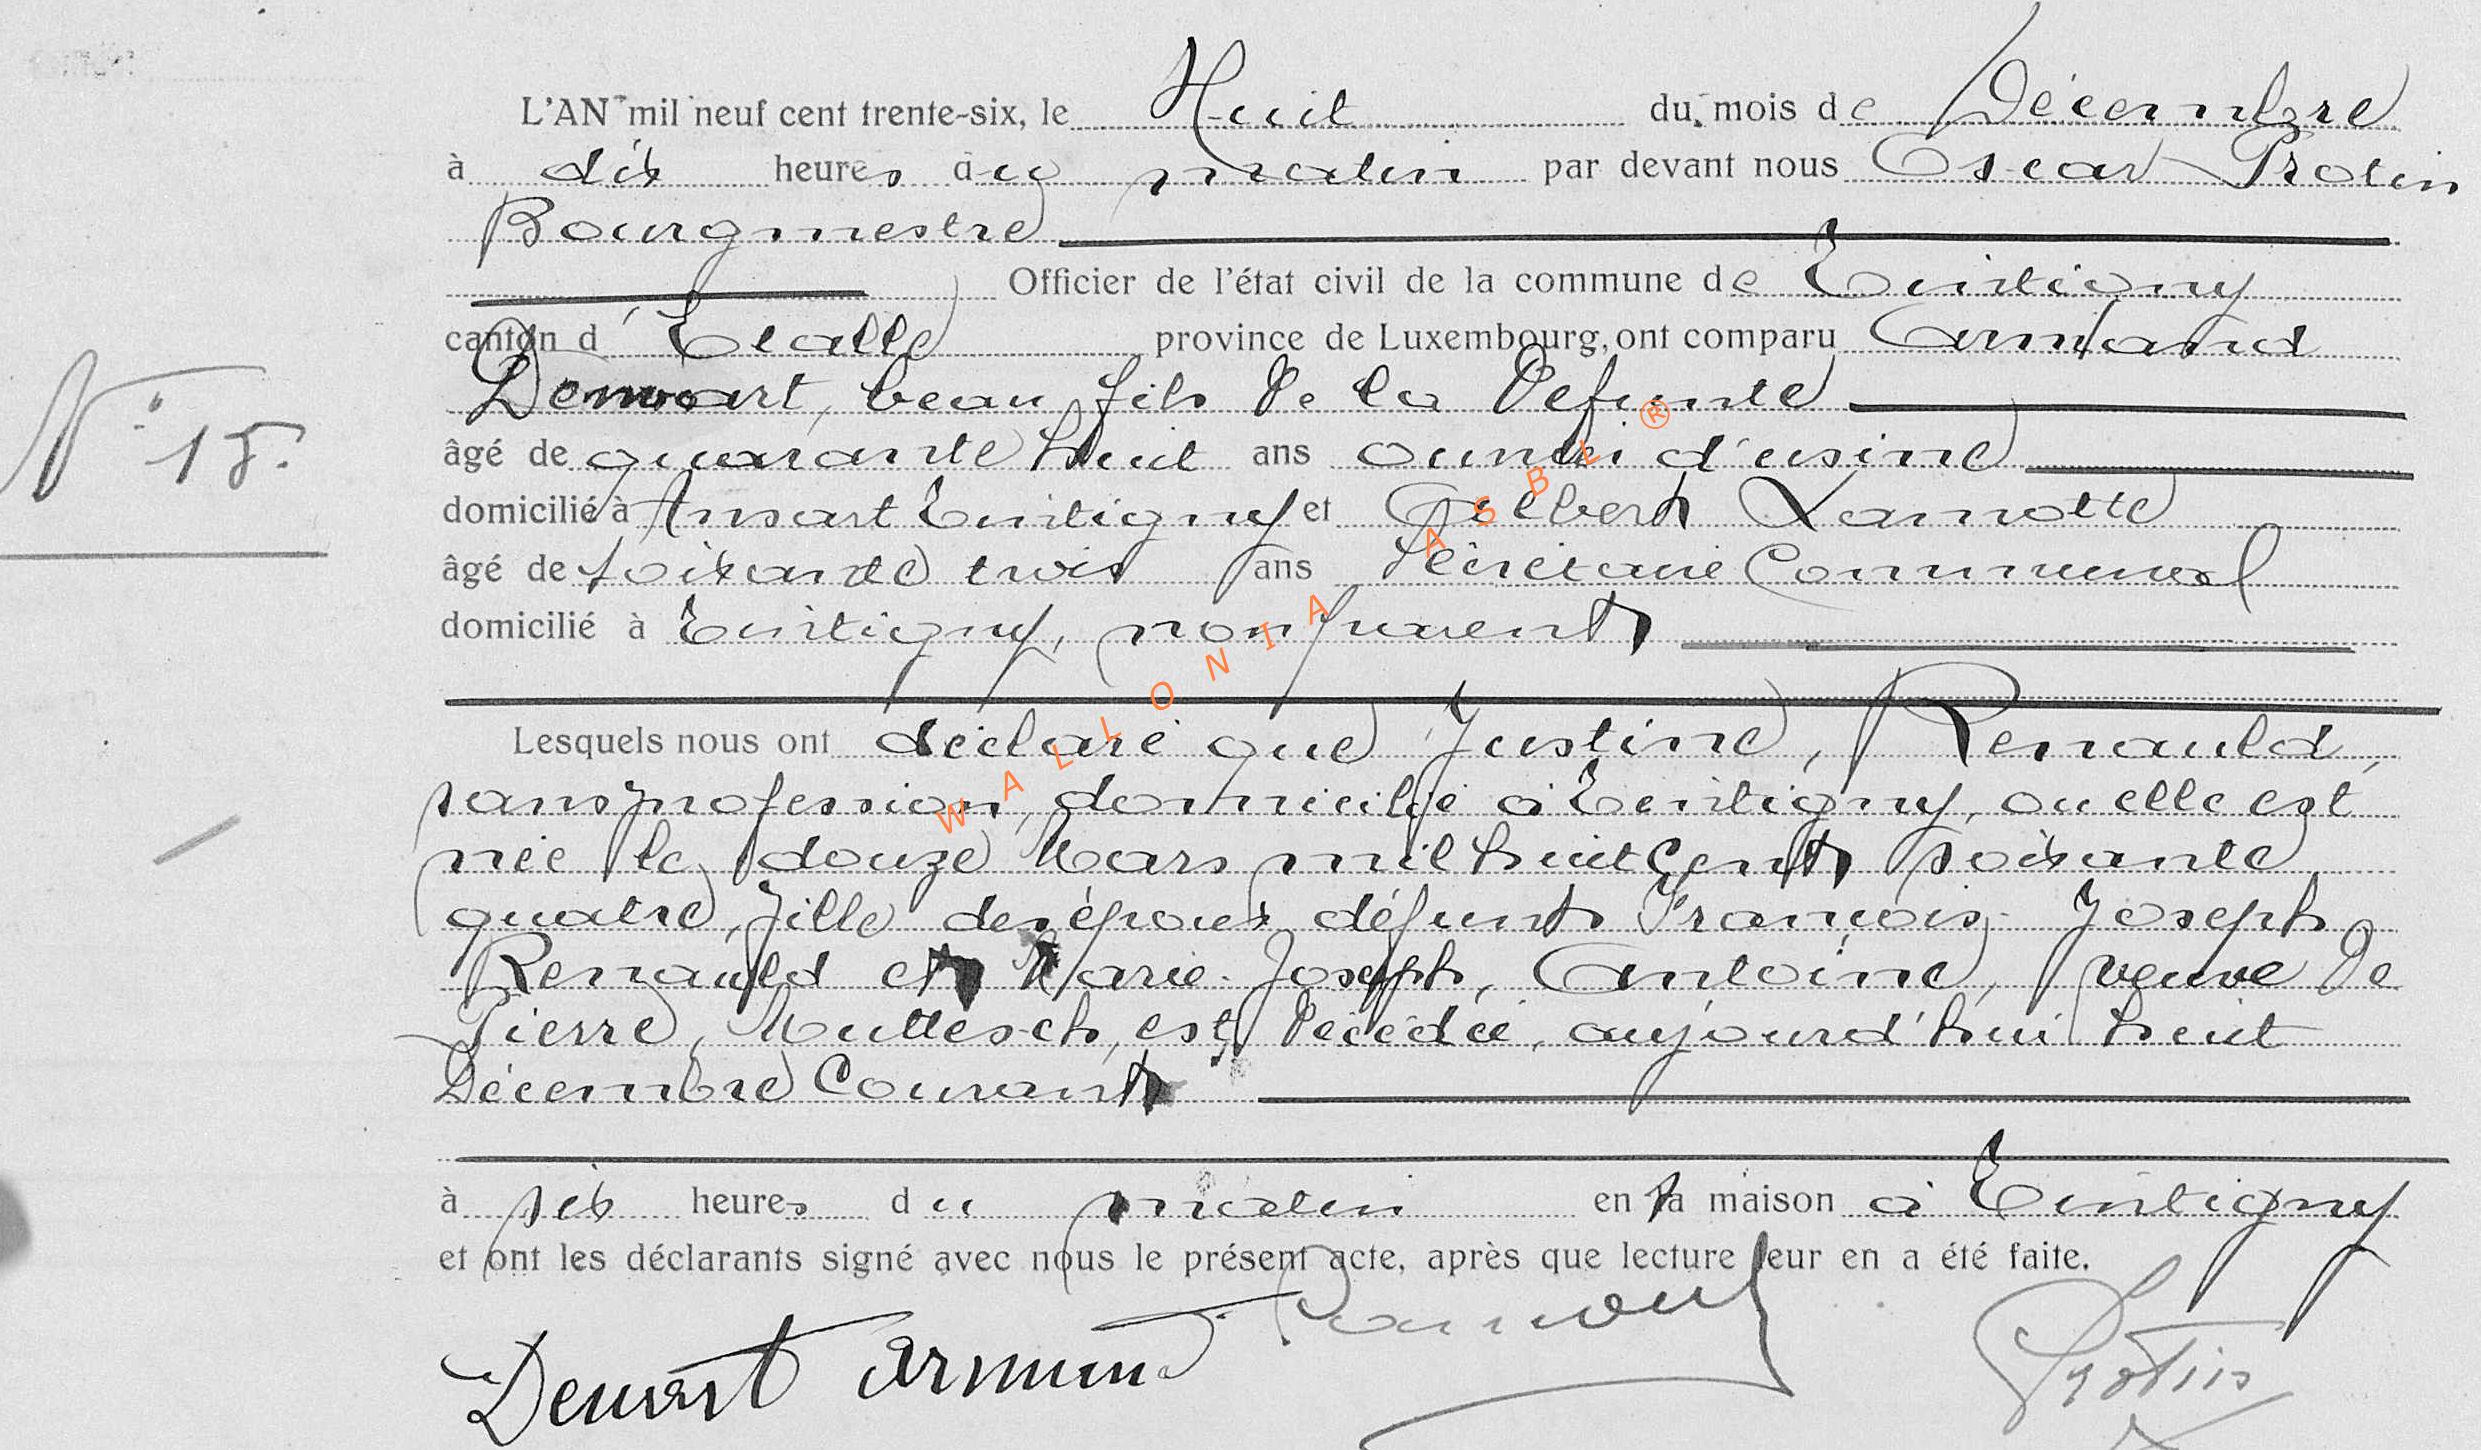 L'AN mil neuf cent trente-six, le Huit du mois de Décembre
à dix heures du matin par devant nous Oscar Protin
Bourgmestre
Officier de l'état civil de la commune de Tintigny
canton d'Etalle province de Luxembourg, ont comparu Armand
Demoart, beau fils de la Défunte
âgé de quarante huit ans ouvrier d'usine
domicilié à Ansart Tintigny et Gelbert Lamotte
âgé de soixante trois ans Secrétaire Communal
domicilié à Tintigny, non parent
Lesquels nous ont déclaré que Justine, Renauld,
sans profession, domiciliée à Tintigny, ou elle est
née le douze Mars mil huit Cent soixante
quatre, fille des époux défunts François-Joseph
Renauld et Marie-Joseph, Antoine, veuve De
Pierre, Muttesch, est Décédée, aujourd'hui huit
Décembre Courant
N° 15.
à six heures du matin en sa maison à Tintigny
et ont les déclarants signé avec nous le présent acte, après que lecture leur en a été faite.
Armand
Protin
WALLONIA ASBL ®